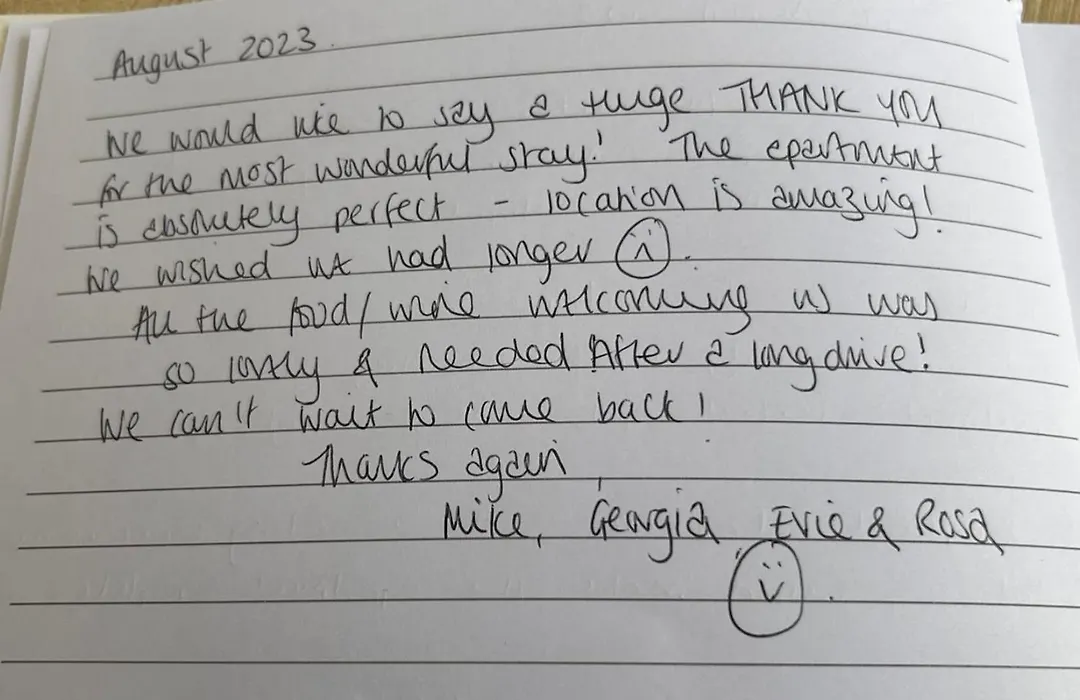 August 2023.
We would like to say a Huge THANK YOU
for the most wonderful stay! The apartment
is absolutely perfect - location is amazing!
We wished we had longer ☹.
All the food/wine welcoming us was
so lovely & needed After a long drive!
We can't wait to come back!
Thanks again,
Mike, Georgia Evie & Rosa
☺.